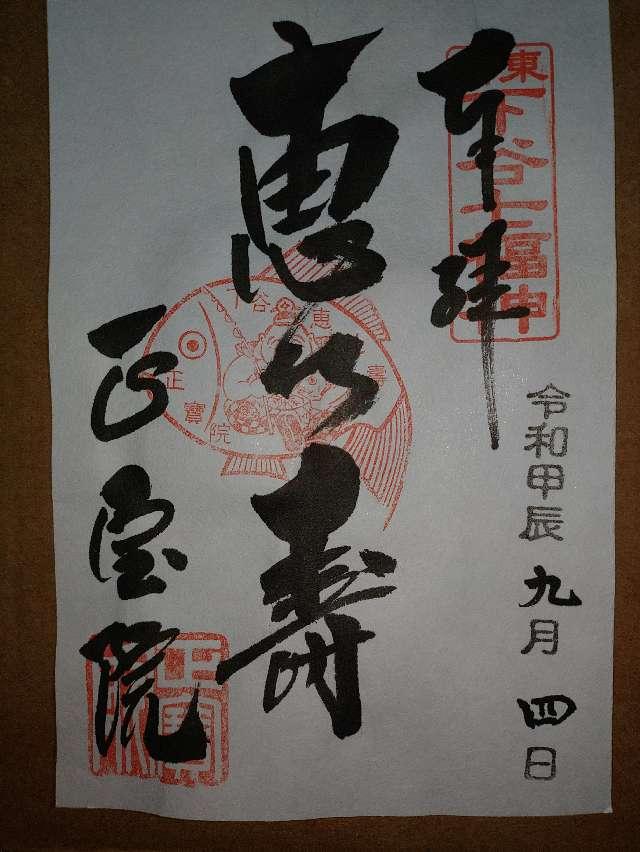 奉拝
東下谷七福神
令和甲辰九月四日
恵比寿
下谷恵比寿
正寶院
正宝院